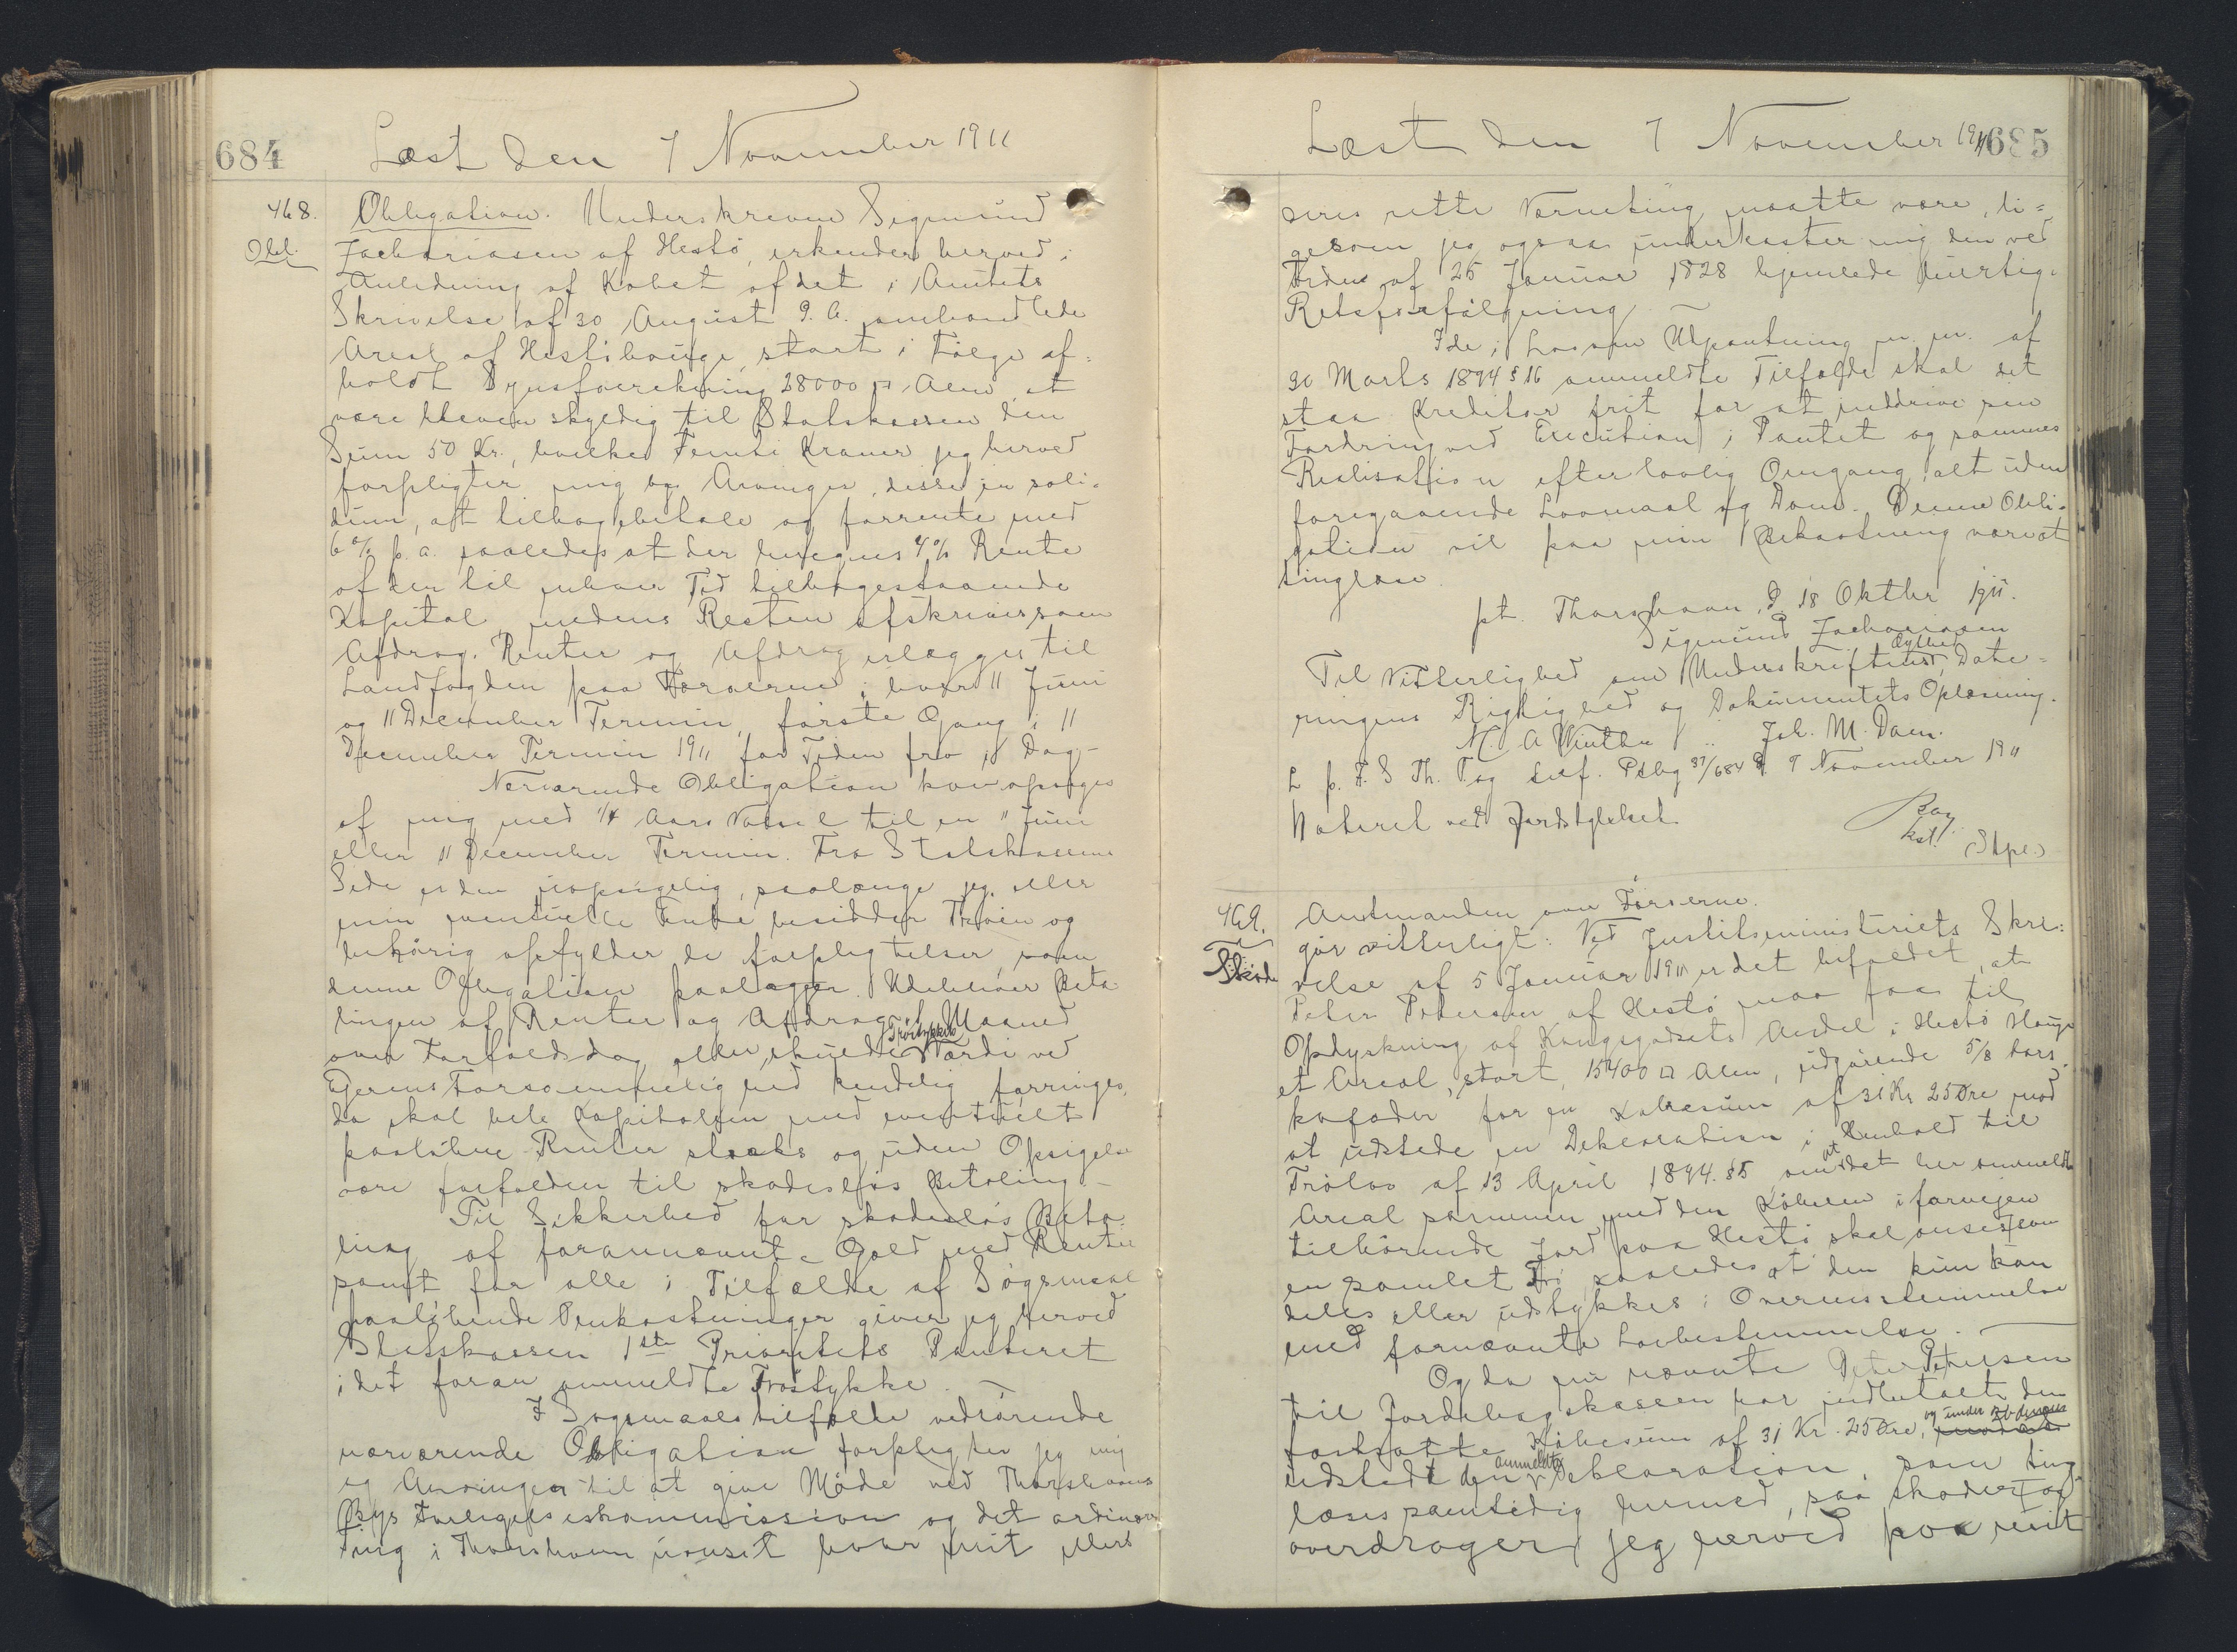 684
Læst den 7 November 1911
468.
Obl.
Obligation. Underskrevne Sigmund
Zachariasen af Hestø, erkender herved i
Anledning af Købet af det i Amtets
Skrivelse af 30 August d. A. omhandlede
Areal af Hestøhauge, stort i Følge af=
holdt Synsforretning 28000 □ Alen, at
være bleven skyldig til Statskassen den
Sum 50 Kr., hvilke Femti Kroner jeg herved
forpligter mig og Arvinger, disse in soli=
dum, at tilbagebetale og forrente med
6 % p. a. saaledes at der beregnes 4 % Rente
af den til enhver Tid tilbagestaaende
Kapital, medens Resten afskrives som
Afdrag. Renter og Afdrag erlægges til
Landfogden paa Færøerne i hver 11 Juni
og 11 December Termin, første Gang i 11
December Termin 1911 for Tiden fra i Dag. –
Nærværende Obligation kan opsiges
af mig med 1/4 Aars Varsel til en 11 Juni
eller 11 December Termin. Fra Statskassens
Side er den uopsigelig, saalænge jeg eller
min eventuelle Enke besidder Trøen og
behørig opfylder de Forpligtelser, som
denne Obligation paalægger. Udebliver Beta
lingen af Renter og Afdrag 1 Maaned
over Forfaldsdag eller skulde Trøstykkets Værdi ved
Ejerens Forsømmelighed kendelig forringes,
da skal hele Kapitalen med eventuelt
paaløbne Renter straks og uden Opsigelse
være forfalden til skadesløs Betaling –
Til Sikkerhed for skadesløs Beta
ling af forannævnte Gæld med Renter
samt for alle i Tilfælde af Søgsmaal
paaløbende Omkostninger giver jeg herved
Statskassen 1ste Prioritets Panteret
i det foran ommeldte Trøstykke. –
I Søgsmaalstilfælde vedrørende
nærværende Obligation forpligter jeg mig
og Arvinger til at give Møde ved Thorshavns
Bys Forligelseskommission og det ordinære
Ting i Thorshavn uanset hvor mit eller
Læst den 7 November 1911
685
deres rette Værneting maatte være, li=
gesom jeg ogsaa underkaster mig den ved
Frdn. af 25 Januar 1828 hjemlede hurtige
Retsforfølgning –
I de i Lov om Udpantning m. m. af
29 Marts 1894 § 16 ommeldte Tilfælde skal det
staa Kreditor frit for at inddrive sin
Fordring ved Execution i Pantet og sammes
Realisation efter lovlig Omgang, alt uden
foregaaende Lovmaal og Dom. Denne Obli=
gation vil paa min Bekostning være at
tinglæse.
pt. Thorshavn, d. 18 Oktbr 1911.
Sigmund Zachariasen
Til Vitterlighed om Underskriftens Ægthed, Date=
ringens Rigtighed og Dokumentets Oplæsning.
N. A Winther .. Joh. M. Dam.
L p. F. S Th. Tog Litf. Ptbg 37/684 d. 7 November 1911
Noteret ved Jordstykket.
Bay
kst.
(Stpl.)
469.
Skøde
Amtmanden over Færøerne.
gør vitterligt: Ved Justitsministeriets Skri=
velse af 5 Januar 1911 er det bifaldet, at
Peter Petersen af Hestø maa faa til
Opdyrkning af Kongsgodsets Andel i Hestø Hauge
et Areal, stort 15400 □ Alen, udgørende 5/8 Fors
kofoder for en Købesum af 31 Kr 25 Øre mod
at udstede en Deklaration i Henhold til
Trølov af 13 April 1894. § 5, om at det her ommeldte
Areal sammen med den Køberen i forvejen
tilhørende Jord paa Hestø skal anses som
en samlet Trø, saaledes at den kun kan
deles eller udstykkes i Overensstemmelse
med fornævnte Lovbestemmelse. –
Og da nu nævnte Peter Petersen
til Jordebogskassen har indbetalt den
fastsatte Købesum af 31 Kr. 25 Øre, og under
udstedt den ommeldte Deklaration, som ting
læses samtidig hermed, saa skøder og
overdrager jeg herved paa mit